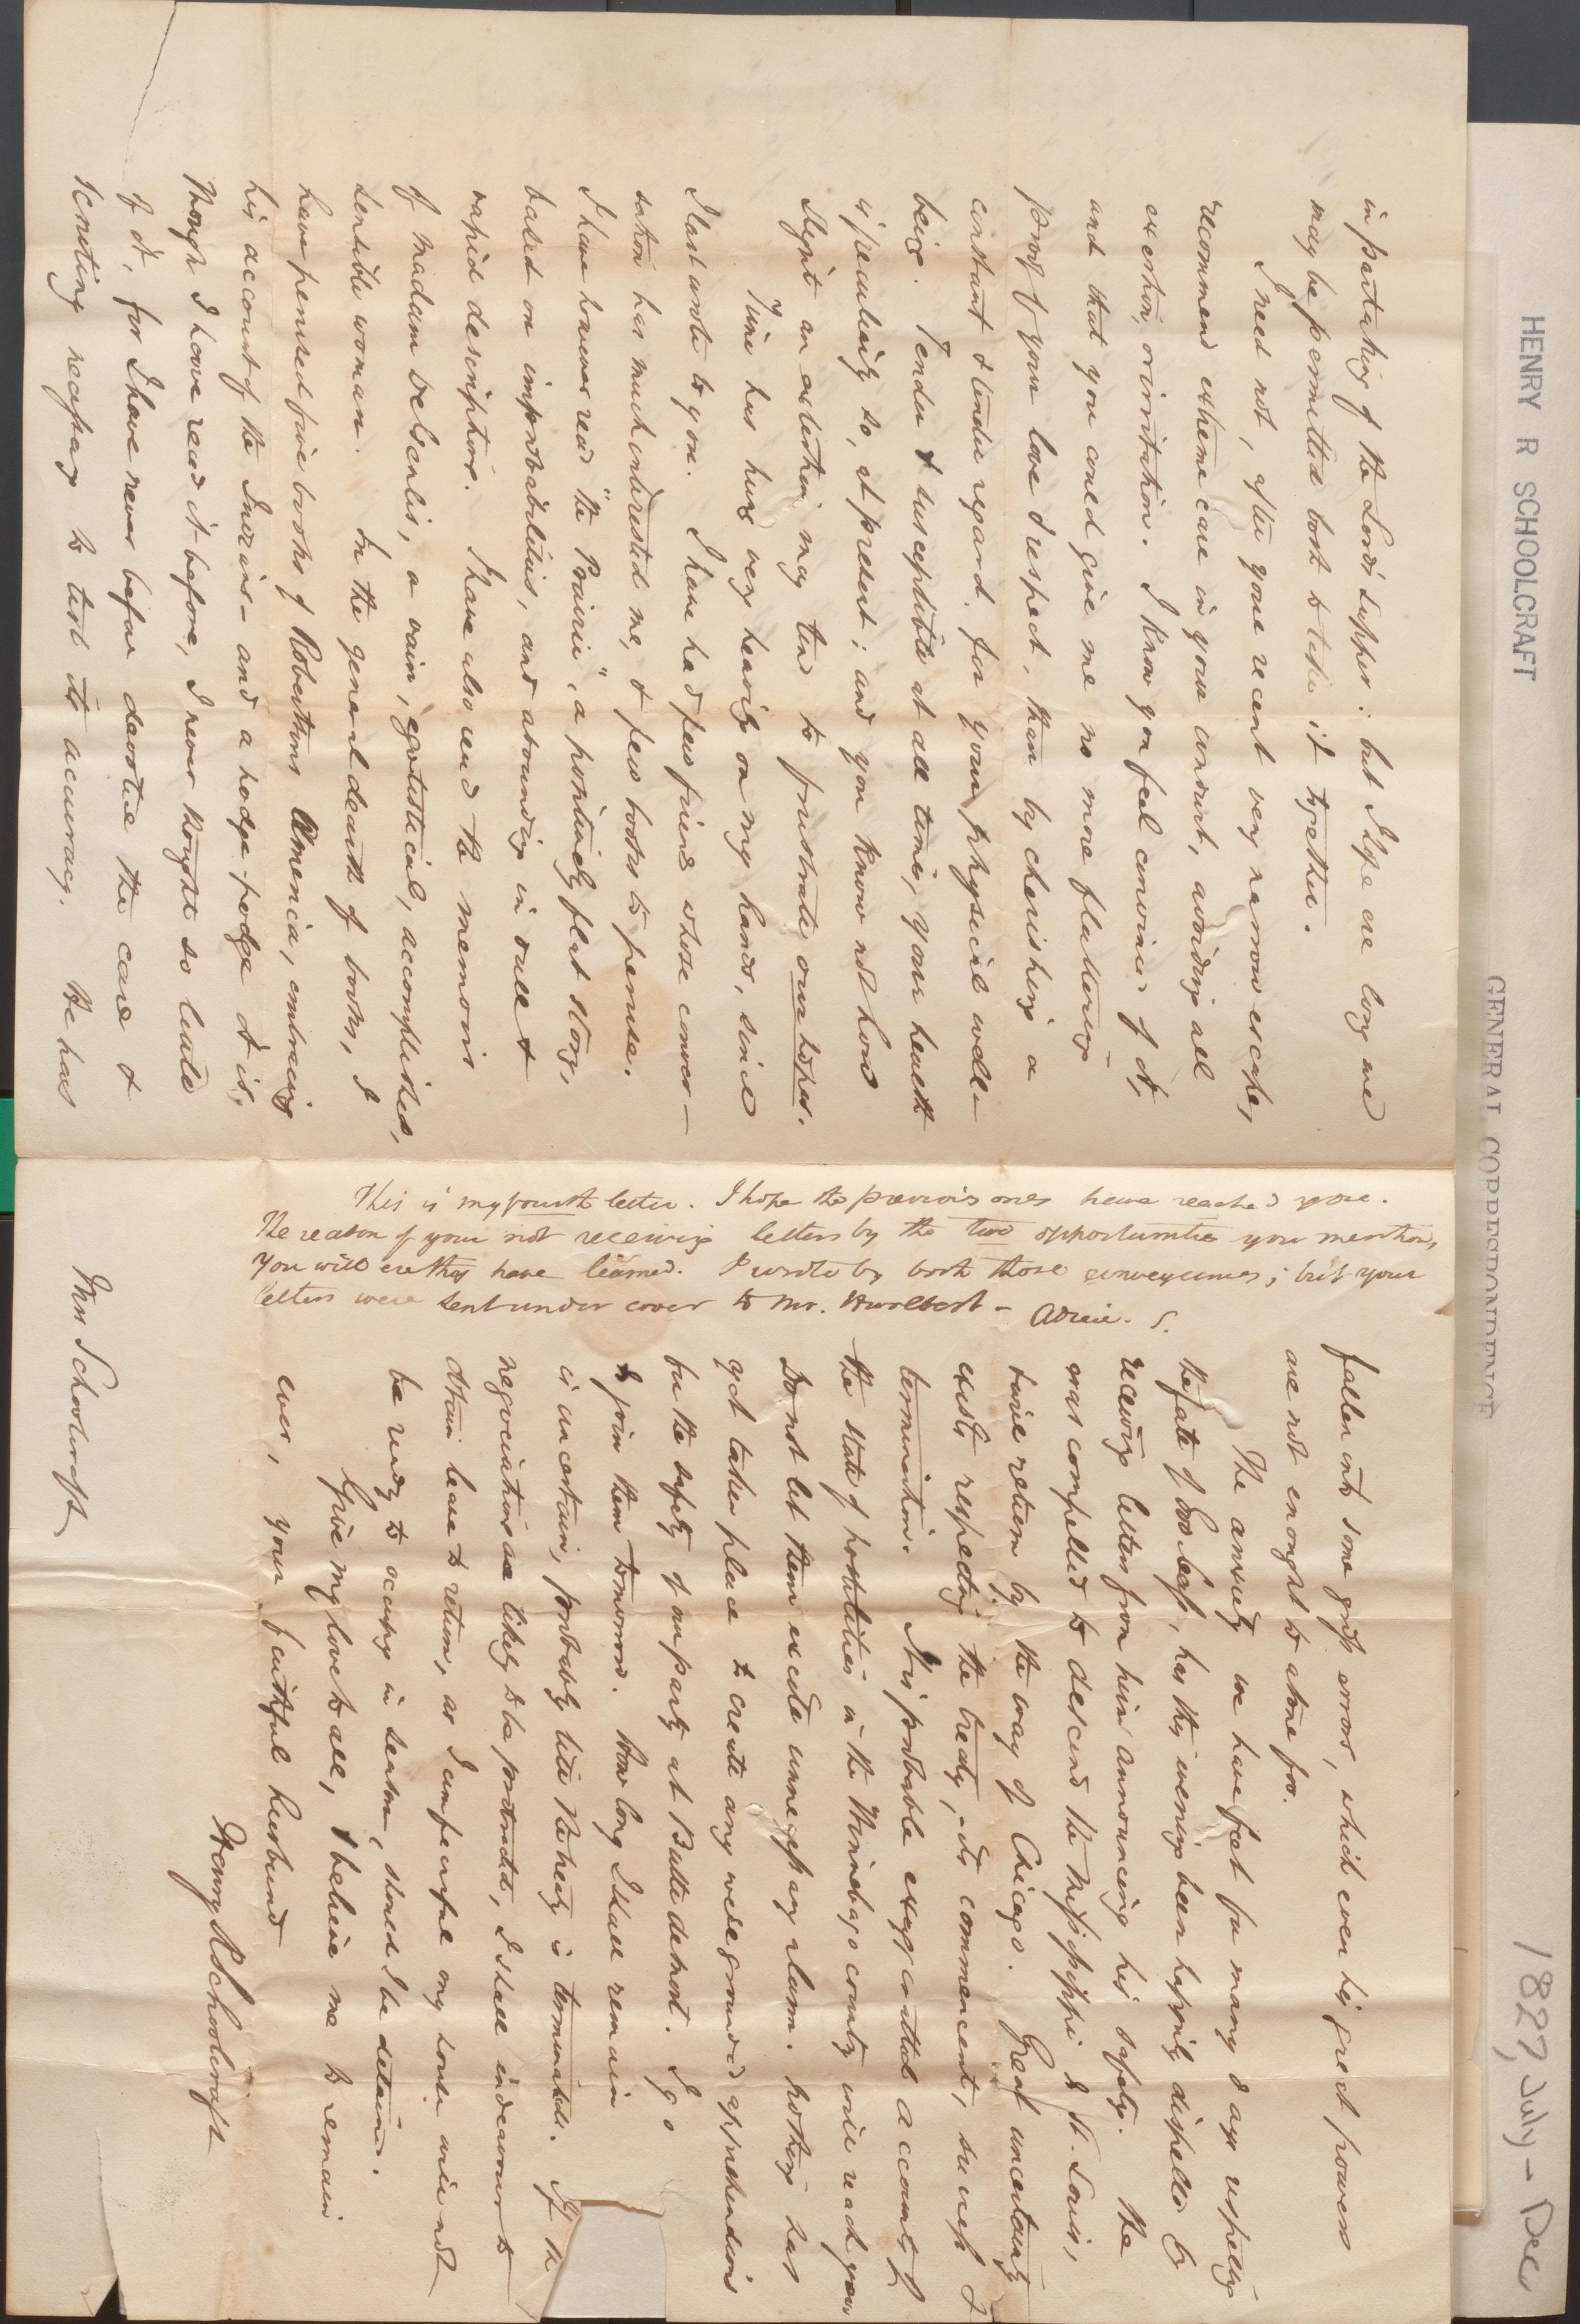 HENRY R SCHOOLCRAFT
GENERAL CORRESPONDENCE
1827, July - Dec
in partaking of the Lord's supper: but I hope ere long we
may be permitted both to take it together.
I need not, after your recent very narrow escape,
recommend extreme care in your conduct, avoiding all
exertion, or irritation. I know you feel convinced of it,
and that you could give me no more flattering
proof of your love & respect, than by cherishing a
constant & tender regard for your physical well-
being. Tender & susceptible at all times, your health
is peculiarly so, at present; and you know not how
slight an exertion may tend to frustrate our hopes.
Time has hung very heavily on my hands, since
I last wrote to you. I have had few friends whose conver-
sation has much interested me, & few books to peruse.
I have however read "the Prairie", a positively flat story,
based on improbabilities, and abounding in dull &
vapid description. I have also read the memoirs
of madam De Genlis, a vain, egotistical, accomplished,
sensible woman. In the general dearth of books, I
have perused five books of Robertsons America, embracing
his account of the Indians - and a hodge podge it is.
Though I have read it before, I never thought so little
of it, for I have never before devoted the care &
scrutiny necessary to test its accuracy. He has
This is my fourth letter. I hope the previous ones have reached you.
The reason of your not receiving letters by the two opportunities you mention,
you will ere this have learned. I wrote by both those conveyances; but your
letters were sent under cover to Mr. Hurlbert - Adieu. S.
fallen into some gross errors, which even his great powers
are not enough to atone for.
The anxiety we have felt for many days respecting
the fate of Gov Cass, has this evening been happily dispelled by
receiving letters from him announcing his safety. He
was compelled to descend the Mississippi to St. Louis,
& will return by the way of Chicago. Great uncertainty
exists respecting the treaty, - its commencement, success &
termination. It is probable exaggerated accounts of
the state of hostilities in the Winnebago country will reach you.
Do not let them excite unnecessary alarm. Nothing has
yet taken place to create any well grounded apprehensions
for the safety of our party at Butte des mort. I go
to join them tomorrow. How long I shall remain
is uncertain, probably till the treaty is terminated. If the
negociations are likely to be protracted, I shall endeavour to
obtain leave to return, as I am fearful my house will not
be ready to occupy in season, should I be detained.
Give my love to all, & believe me to remain
ever, your faithful husband
Henry R Schoolcraft
Mrs Schoolcraft